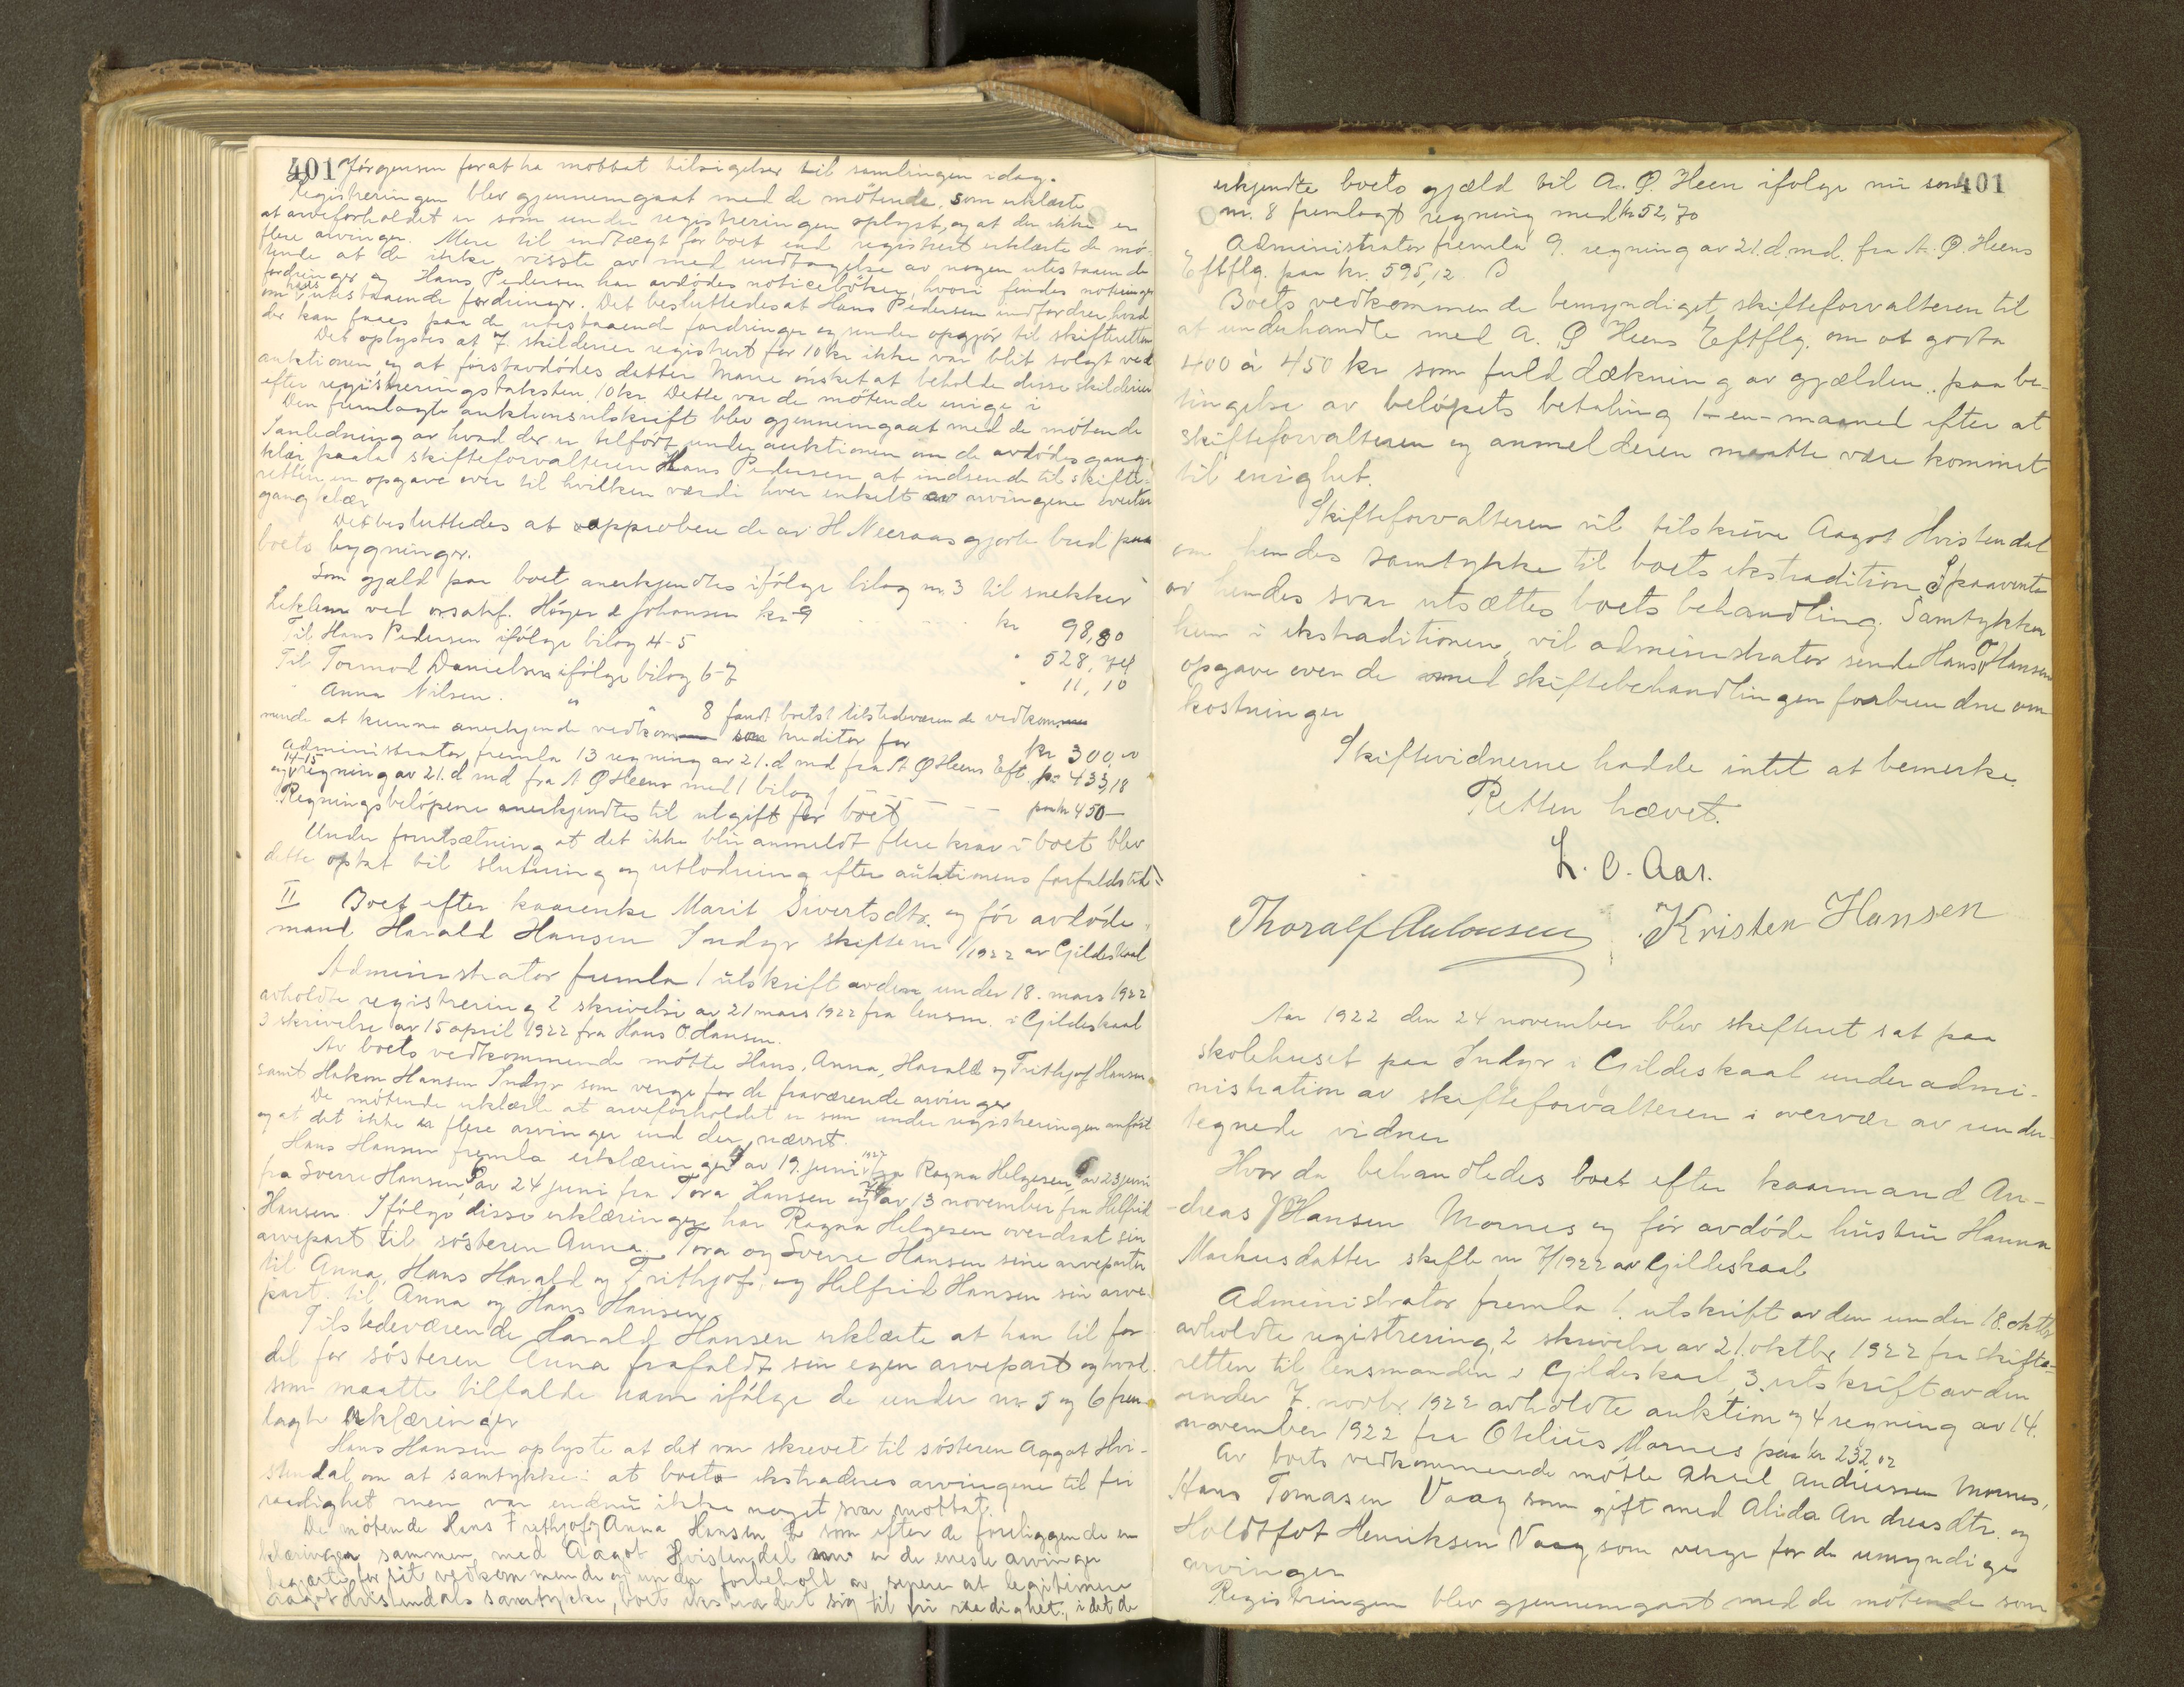 401 Jörgensen for at ha mottat tilsigelse til samlingen idag.
Registreringen blev gjennemgaat med de mötende, som erklærte
at arveforholdet er som under registreringen oplyst, og at der ikke er
flere arvinger. Mere til indtægt for boet end registrert erklærte de mö-
tende at de ikke visste av med undtagelse av nogen utestaaende
fordringer og Hans Pedersen har avdödes noticeböker, hvori findes noteringer
om hans utestaaende fordringer. Det besluttedes at Hans Pedersen indfordrer, hvad
der kan faaes paa de utestaaende fordringer og sender opgjör til skifteretten
Det oplystes at 7 skilderier registrert for 10 kr ikke var blit solgt ved
auktionen, og at förstavdödes datter Marie önsket at beholde disse skilderier
efter registreringstaksten 10 kr. Dette var de mötende enige i
Den fremlagte auktionsutskrift blev gjennemgaat med de mötende
I anledning av hvad der er tilfört under auktionen om de avdödes gang-
klær paala skifteforvalteren Hans Pedersen at indsende til skifte-
retten en opgave over til hvilken værdi hver enkelt av arvingene overtar
gangklær
Det besluttedes at approbere de av H. Neeraas gjorte bud paa
boets bygninger.
Som gjæld paa boet anerkjendtes ifölge bilag nr. 3 til snekker
Leklem ved orsakf. Höyer & Johansen kr. 9 kr 98,80
Til Hans Pedersen ifölge bilag 4-5 " 528,74
Til Tormod Danielsen ifölge bilag 6-7 " 11,10
" Anna Nilsen. " " 8 fandt boets tilstedeværende vedkom-
mende at kunne anerkjende vedkom som kreditor for kr 300,00
Administrator fremla 13 regning av 21. d md fra A Ø Heens Eft pr 433,18
og 14-15 regning av 21. d md fra A Ø Heens med 1 bilag paa kr 450-
Regningsbelöpene anerkjendtes til utgift for boet
Under forutsætning at det ikke blir anmeldt flere krav i boet blev
dette optat til slutning og utlodning efter auktionens forfaldstid
II Boet efter kaarenke Marit Sivertsdtr. og för avdöde
mand Harald Hansen Indyr skifte nr 1/1922 av Gildeskaal
Administrator fremla 1 utskrift av den under 18. mars 1922
avholdte registrering 2 skrivelse av 21 mars 1922 fra lensm. i Gildeskaal
3 skrivelse av 15 april 1922 fra Hans O Hansen.
Av boets vedkommende mötte Hans, Anna, Harald og Frithjof Hansen
samt Hakon Hansen Indyr som verge for de fraværende arvinger
De mötende erklærte at arveforholdet er som under registreringen anfört
og at det ikke er flere arvinger end der nævnt.
Hans Hansen fremla erklæringer 4 av 19. juni 1922 fra Ragna Helgesen 5 av 23 juni
fra Sverre Hansen 6 av 24 juni fra Tora Hansen og 7 av 13 november fra Helfrid
Hansen. Ifölge disse erklæringer har Ragna Helgesen overdrat sin
arvepart til sösteren Anna. Tora og Sverre Hansen sine arveparter
til Anna, Hans Harald og Frithjof, og Helfrid Hansen sin arve-
part til Anna og Hans Hansen.
Tilstedeværende Harald Hansen erklærte at han til for-
del for sösteren Anna frafaldt sin egen arvepart og hvad
som maatte tilfalde ham ifölge de under nr 5 og 6 frem-
lagte erklæringer
Hans Hansen oplyste at det var skrevet til sösteren Aagot Hvi-
stendal om at samtykke i at boets ekstraderes arvingene til fri
raadighet men var endnu ikke noget svar mottat.
De mötende Hans Frithjof og Anna Hansen som efter de foreliggende er-
klæringer sammen med Aagot Hvistendal er de eneste arvinger
begjærte for sit vedkommende og under forbehold av senere at legitimere
Aagot Hvistendals samtykke, boet ekstradert sig til fri raadighet, idet de
erkjendte boets gjæld til A. Ø. Heen ifölge nu som 401
nr. 8 fremlagt regning med kr 52,70
Administrator fremla 9. regning av 21. d. md. fra A. Ø. Heens
Eftflg. paa kr. 595,12
Boets vedkommende bemyndiget skifteforvalteren til
at underhandle med A. Ø Heens Eftflg. om at godta
400 à 450 kr som fuld dækning av gjælden paa be-
tingelse av belöpets betaling 1-en-maaned efter at
skifteforvalteren og anmelderen maatte være kommet
til enighet.
Skifteforvalteren vil tilskrive Aagot Hvistendal
om hendes samtykke til boets ekstradition I paavente
av hendes svar utsættes boets behandling. Samtykker
hun i ekstraditionen, vil administrator sende Hans O Hansen
opgave over de med skiftebehandlingen forbundne om-
kostninger
Skiftevidnerne hadde intet at bemerke.
Retten hævet.
L. O. Aar.
Thoralf Antonsen Kristen Hansen
Aar 1922 den 24 november blev skifteret sat paa
skolehuset paa Indyr i Gildeskaal under admi-
nistration av skifteforvalteren i overvær av under-
tegnede vidner
Hvor da behandledes boet efter kaarmand An-
dreas J Hansen Mornes og för avdöde hustru Hanna
Markusdatter skifte nr 7/1922 av Gildeskaal
Administrator fremla 1. utskrift av den under 18. oktbr
avholdte registrering, 2 skrivelse av 21. oktbr 1922 fra skifte-
retten til lensmanden i Gildeskaal, 3 utskrift av den
under 7. novbr 1922 avholdte auktion og 4 regning av 14.
november 1922 fra Otelius Mornes paa kr 232 02
Av boets vedkommende mötte Aksel Andreassen Mornes,
Hans Tomasen Vaag som gift med Alida Andreasdtr. og
Holdtfot Henriksen Vaag som verge for de umyndige
arvinger
Registringen blev gjennemgaat med de mötende som